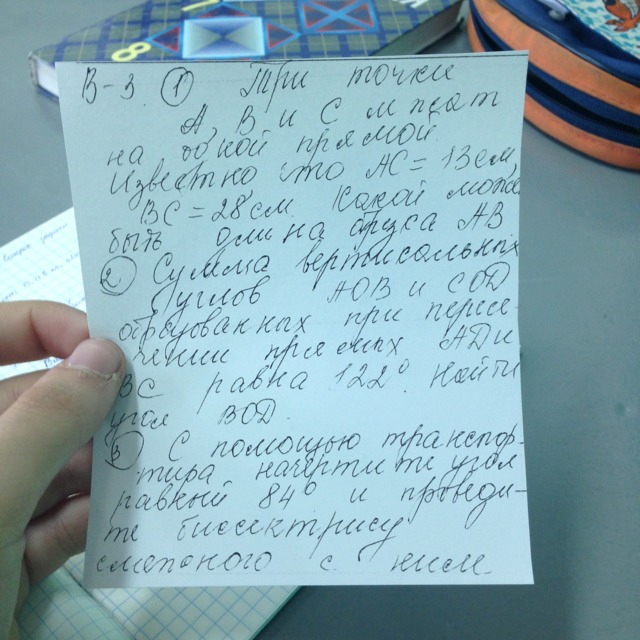 В-3 ① Три точки
А, В и С лежат
на одной прямой
Известно что АС = 13 см
ВС = 28 см Какой может
быть длина отрезка АВ
② Сумма вертикальных
углов АОВ и СОD
образованных при пересе
чении прямых АD и
ВС равна 122° найти
угол ВОD.
③ С помощью транспор-
тира начертите угол
равный 84° и проведи-
те биссектрису
смежного с ним